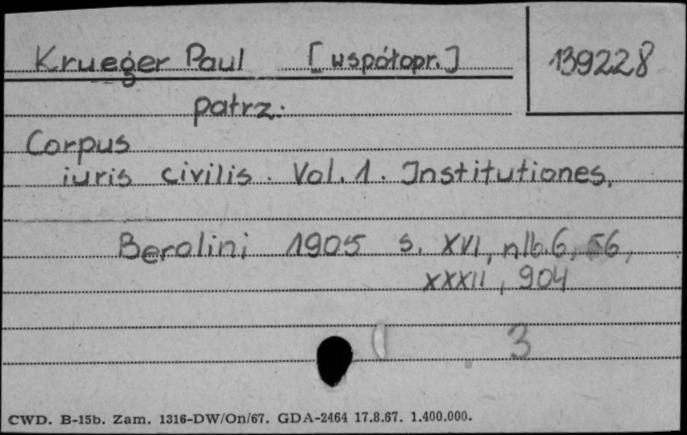 Krueger Paul [współopr.] 139228
patrz:
Corpus
iuris civilis. Vol. 1. Institutiones,
Berolini 1905 s. XVI, nlb. 6, 56,
XXXII, 904
3
CWD. B-15b. Zam. 1316-DW/On/67. GDA-2464 17.8.67. 1.400.000.